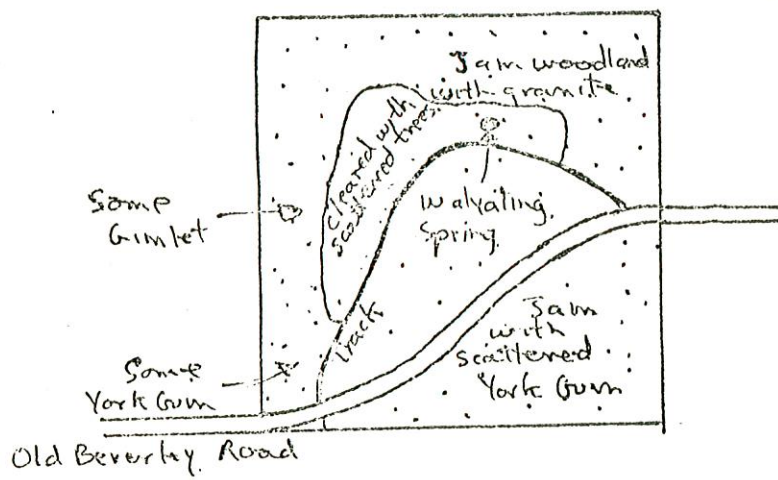 Jam woodland
with granite
cleared with
scattered trees
Some
Gimlet
Walyating
Spring
track
Jam
with
scattered
York Gum
Some
York Gum
Old Beverley Road